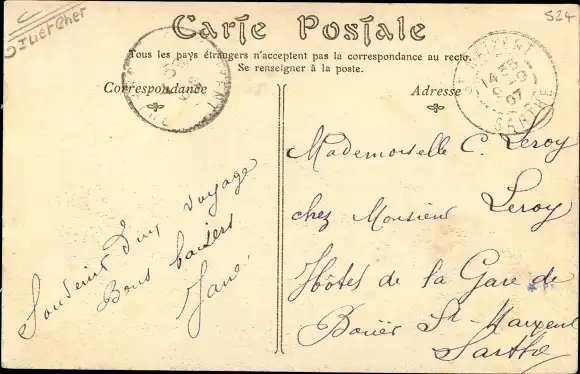 D. Loir et Cher
S24
Carte Postale
Tous les pays étrangers n'acceptent pas la correspondance au recto.
Se renseigner à la poste.
Correspondance
Adresse
SARTHE
Souvenir d'un voyage
Bons baisers
Jane.
Mademoiselle C. Leroy
chez Monsieur Leroy
Hôtel de la Gare de
Bouër St-Maixent
Sarthe